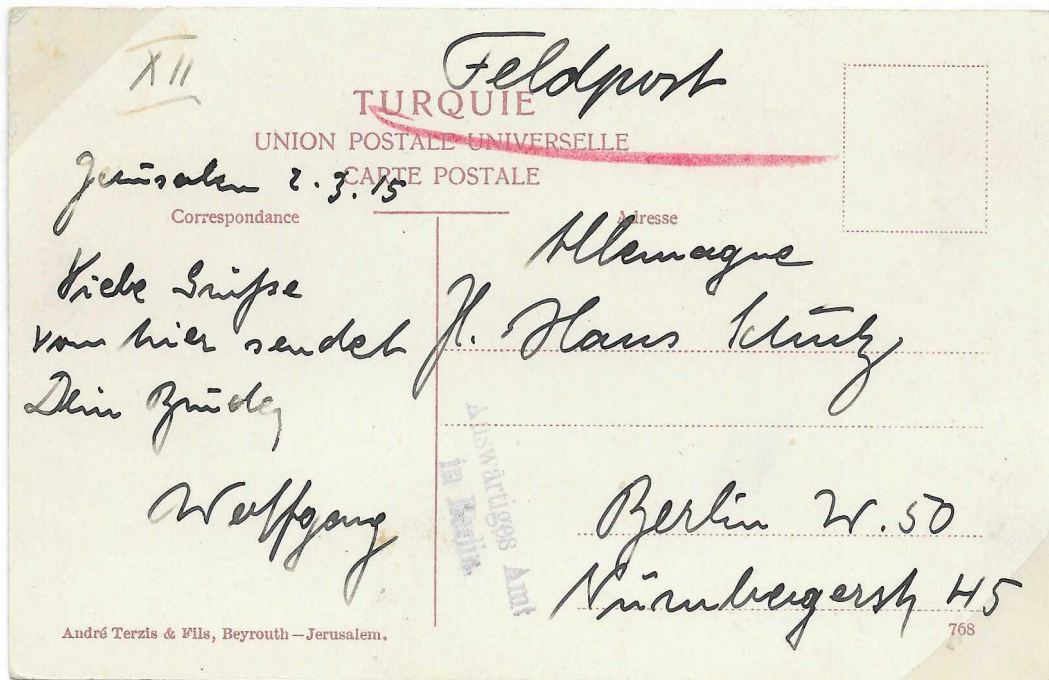 XII
Feldpost
TURQUIE
UNION POSTALE UNIVERSELLE
CARTE POSTALE
Jerusalem 2.3.15
Correspondance
Adresse
Liebe Grüße
vom hier sendet
Dein Bruder
Wolfgang
Allemagne
H. Hans Schütz
Berlin W. 50
Nürnbergerstr 45
Auswärtiges Amt
in Berlin.
André Terzis & Fils, Beyrouth—Jerusalem.
768